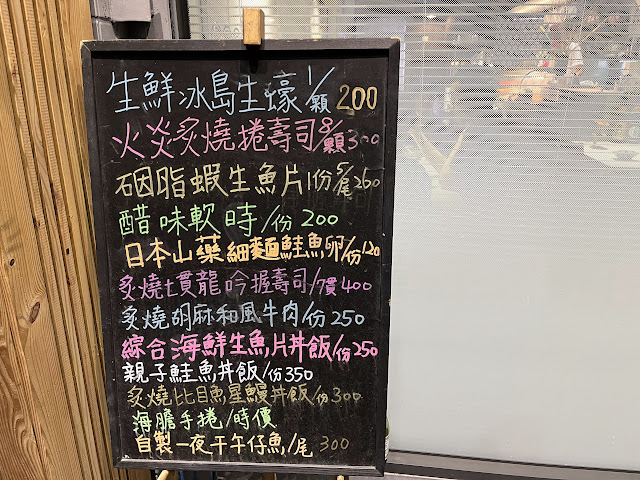 生鮮冰島生蠔1/顆200
火炎炙燒捲壽司8/顆300
胭脂蝦生魚片1份5/尾260
醋味軟時/份200
日本山藥細麵鮭魚卵/份120
炙燒七貫龍吟握壽司/7貫400
炙燒胡麻和風牛肉/份250
綜合海鮮生魚片丼飯/份250
親子鮭魚丼飯/份350
炙燒比目魚星鰻丼飯/份300
海膽手捲/時價
自製一夜干午仔魚/尾300